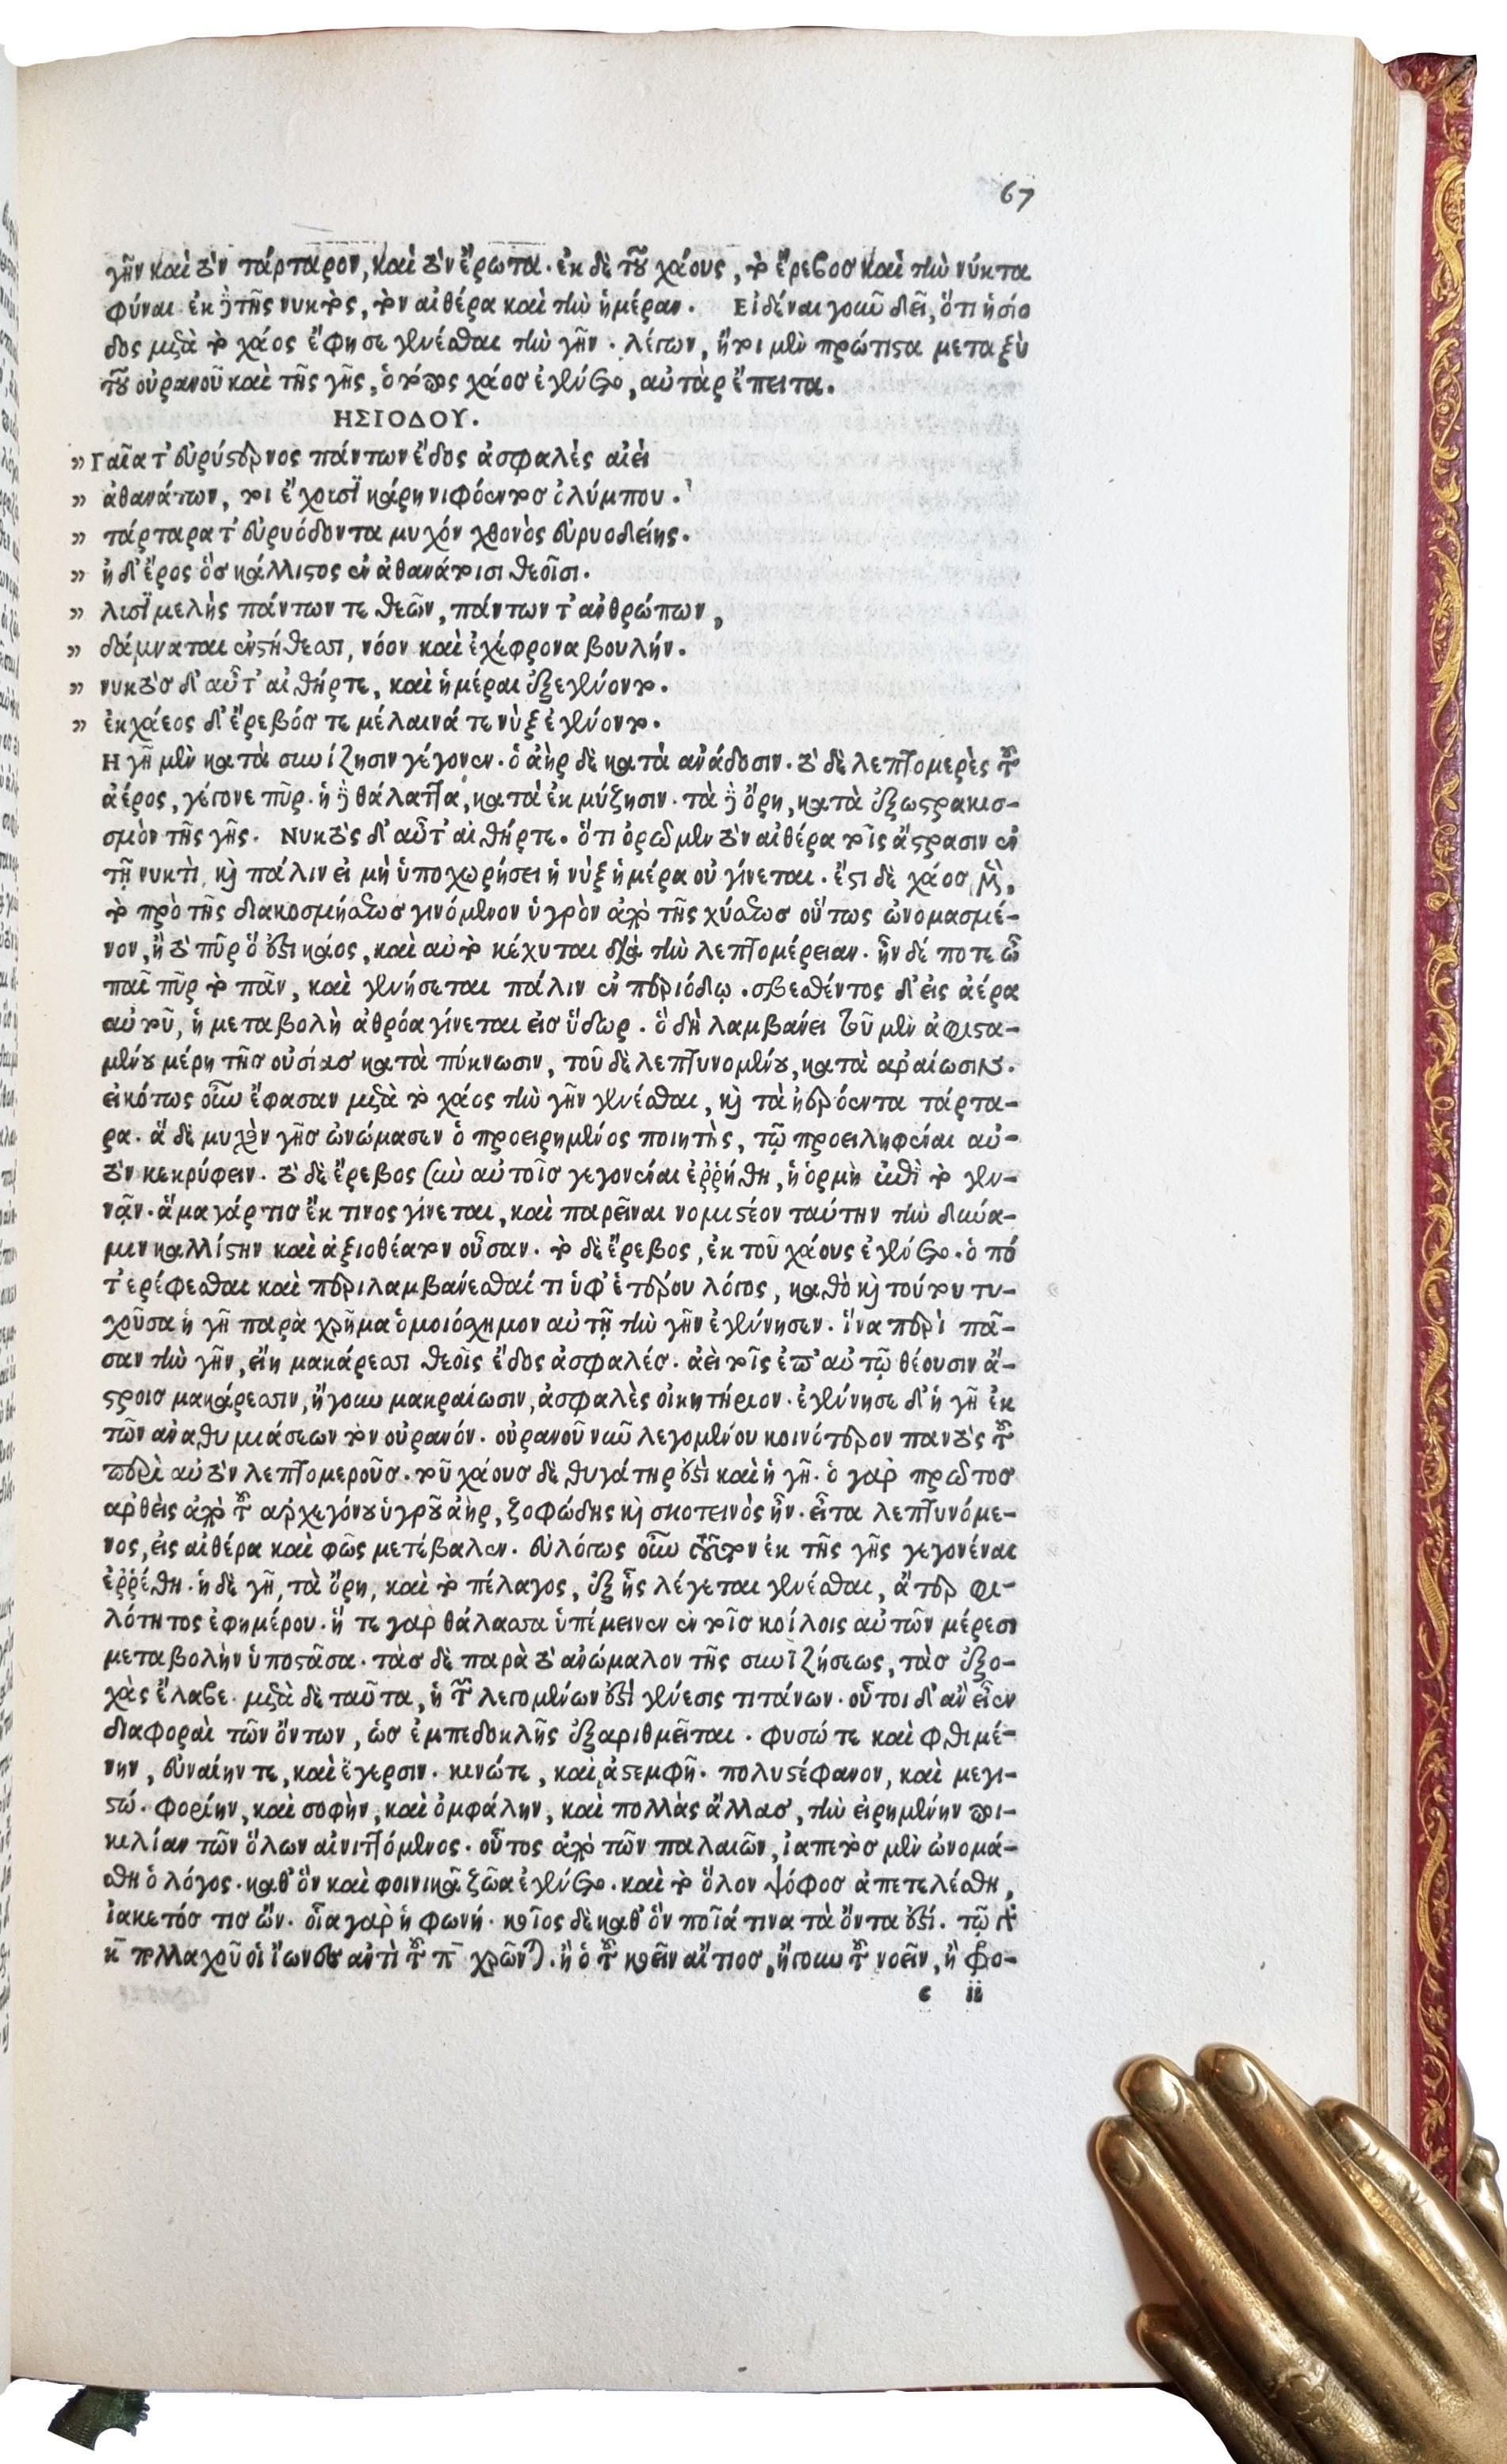 67
γῆν καὶ τὸν τάρταρον, καὶ τὸν ἔρωτα. ἐκ δὲ τοῦ χάους, τὸ ἔρεβος καὶ τὴν νύκτα
φύναι. ἐκ δὲ τῆς νυκτὸς, τὸν αἰθέρα καὶ τὴν ἡμέραν. Εἰδέναι γοῦν δεῖ, ὅτι ἡσίο
δος μετὰ τὸ χάος ἔφησε γενέσθαι τὴν γῆν. λέγων, ἤτοι μὲν πρώτιστα μεταξὺ
τοῦ οὐρανοῦ καὶ τῆς γῆς, ὁ τόπος χάος ἐγένετο, αὐτὰρ ἔπειτα.
ΗΣΙΟΔΟΥ.
" Γαῖα τ' εὐρύστερνος πάντων ἕδος ἀσφαλὲς αἰεὶ
" ἀθανάτων, τοι ἔχουσϊ κάρη νιφόεντος ὀλύμπου.
" τάρταρα τ' εὐρυόδοντα μυχόν χθονὸς εὐρυοδείης.
" ἡ δ' ἔρος ὃς κάλλιστος ἐν ἀθανάτοισι θεοῖσι.
" λυσϊμελὴς πάντων τε θεῶν, πάντων τ' ἀνθρώπων,
" δάμναται ἐν στήθεσσι, νόον καὶ ἐχέφρονα βουλήν.
" νυκτὸς δ' αὖτ' αἰθήρτε, καὶ ἡμέραι ἐξεγένοντο.
" ἐκ χάεος δ' ἔρεβός τε μέλαινά τε νὺξ ἐγένοντο.
Η γῆ μὲν κατὰ συνίζησιν γέγονεν. ὁ ἀὴρ δὲ κατὰ ἀνάδοσιν. τὸ δὲ λεπτομερὲς τοῦ
ἀέρος, γέγονε πῦρ. ἡ δὲ θάλαττα, κατὰ ἐκ μύζησιν. τὰ δὲ ὄρη, κατὰ ἐξωστρακισ-
σμὸν τῆς γῆς. Νυκτὸς δ' αὖτ' αἰθήρτε. ὅτι ὁρῶμεν τὸν αἰθέρα τοῖς ἄστρασιν ἐν
τῇ νυκτὶ, καὶ πάλιν εἰ μὴ ὑποχωρήσει ἡ νὺξ ἡμέρα οὐ γίνεται. ἔστι δὲ χάος μὲν,
τὸ πρὸ τῆς διακοσμήσεως γινόμενον ὑγρὸν ἀπὸ τῆς χύσεως οὕτως ὠνομασμέ-
νον, ἢ τὸ πῦρ ὅ ἐστι κάος, καὶ αὐτὸ κέχυται διὰ τὴν λεπτομέρειαν. ἦν δέ ποτε ὦ
παῖ πῦρ τὸ πᾶν, καὶ γενήσεται πάλιν ἐν περιόδῳ. σβεσθέντος δ' εἰς ἀέρα
αὐτοῦ, ἡ μεταβολὴ ἀθρόα γίνεται εἰς ὕδωρ. ὃ δὴ λαμβάνει τοῦ μὲν ἀφιστα-
μένου μέρη τῆς οὐσίας κατὰ πύκνωσιν, τοῦ δὲ λεπτυνομένου, κατὰ ἀραίωσιν.
εἰκότως οὖν ἔφασαν μετὰ τὸ χάος τὴν γῆν γενέσθαι, καὶ τὰ ἠερόεντα τάρτα-
ρα. ἃ δὲ μυχὸν γῆς ὠνώμασεν ὁ προειρημένος ποιητὴς, τῷ προειληφέναι αὐ-
τὸν κεκρύφειν. τὸ δὲ ἔρεβος σὺν αὐτοῖς γεγονέναι ἐῤῥήθη, ἡ ὁρμὴ ἐπὶ τὸ γεν-
νᾷν. ἅμα γάρ τις ἔκ τινος γίνεται, καὶ παρεῖναι νομιστέον ταύτην τὴν δύνα-
μιν καλλίστην καὶ ἀξιοθέατον οὖσαν. τὸ δὲ ἔρεβος, ἐκ τοῦ χάους ἐγένετο. ὁ πό
τ' ερίφεσθαι καὶ περιλαμβάνεσθαί τι ὑφ' ἑτέρου λόγος, καθὸ καὶ τούτου τυ-
χοῦσα ἡ γῆ παρὰ χρῆμα ὁμοιόσχημον αὐτῇ τὴν γῆν ἐγέννησεν. ἵνα περὶ πᾶ-
σαν τὴν γῆν, εἴη μακάρεσσι θεοῖς ἕδος ἀσφαλές. ἀεὶ τοῖς ἐπ' αὐτῷ θέουσιν ἄ-
στροις μακάρεσσιν, ἤγουν μακραίωσιν, ἀσφαλὲς οἰκητήριον. ἐγέννησε δ' ἡ γῆ ἐκ
τῶν ἀναθυμιάσεων τὸν οὐρανόν. οὐρανοῦ νῦν λεγομένου κοινότερον παντὸς τοῦ
περὶ αὐτὸν λεπτομεροῦς. τοῦ χάους δὲ θυγάτηρ ἐστὶ καὶ ἡ γῆ. ὁ γὰρ πρῶτος
ἀρθεὶς ἀπὸ τοῦ ἀρχεγόνου ὑγροῦ ἀὴρ, ζοφώδης καὶ σκοτεινὸς ἦν. εἶτα λεπτυνόμε-
νος, εἰς αἰθέρα καὶ φῶς μετέβαλεν. εὐλόγως οὖν τοῦτον ἐκ τῆς γῆς γεγονέναι
ἐῤῥέθη. ἡ δὲ γῆ, τὰ ὄρη, καὶ τὸ πέλαγος, ἐξ ἧς λέγεται γενέσθαι, ἄτερ φι-
λότητος ἐφημέρου. ἥ τε γὰρ θάλασσα ὑπέμεινεν ἐν τοῖς κοίλοις αὐτῶν μέρεσι
μεταβολὴν ὑποστᾶσα. τὰς δὲ παρὰ τὸ ἀνώμαλον τῆς συνϊζήσεως, τὰς ἐξο-
χὰς ἔλαβε. μετὰ δὲ ταῦτα, ἡ τῶν λεγομένων ἐστὶ γένεσις τιτάνων. οὗτοι δ' ἂν εἶεν
διαφοραὶ τῶν ὄντων, ὡς ἐμπεδοκλῆς ἐξαριθμεῖται. φυσώ τε καὶ φθιμέ-
νην, εὐναίην τε, καὶ ἔγερσιν. κινώτε, καὶ ἀστεμφῆ. πολυστέφανον, καὶ μεγι-
στώ. φορίην, καὶ σοφὴν, καὶ ὀμφάλην, καὶ πολλὰς ἄλλας, τὴν εἰρημένην ποι-
κιλίαν τῶν ὅλων αἰνιττόμενος. οὗτος ἀπὸ τῶν παλαιῶν, ἰαπετὸς μὲν ὠνομά-
σθη ὁ λόγος. καθ' ὃν καὶ φοινικᾷ ζῶα ἐγένετο. καὶ τὸ ὅλον ψόφος ἀπετελέσθη,
ἰακετός τις ὤν. οἷα γὰρ ἡ φωνή. κοῖος δὲ καθ' ὃν ποῖά τινα τὰ ὄντα ἐστί. τῷ
κ πολλαχοῦ οἱ ἴωνες ἀντὶ τοῦ π χρῶντ). ἢ ὁ τοῦ κοεῖν αἴτιος, ἤγουν τοῦ νοεῖν, ἢ φρο-
c ii